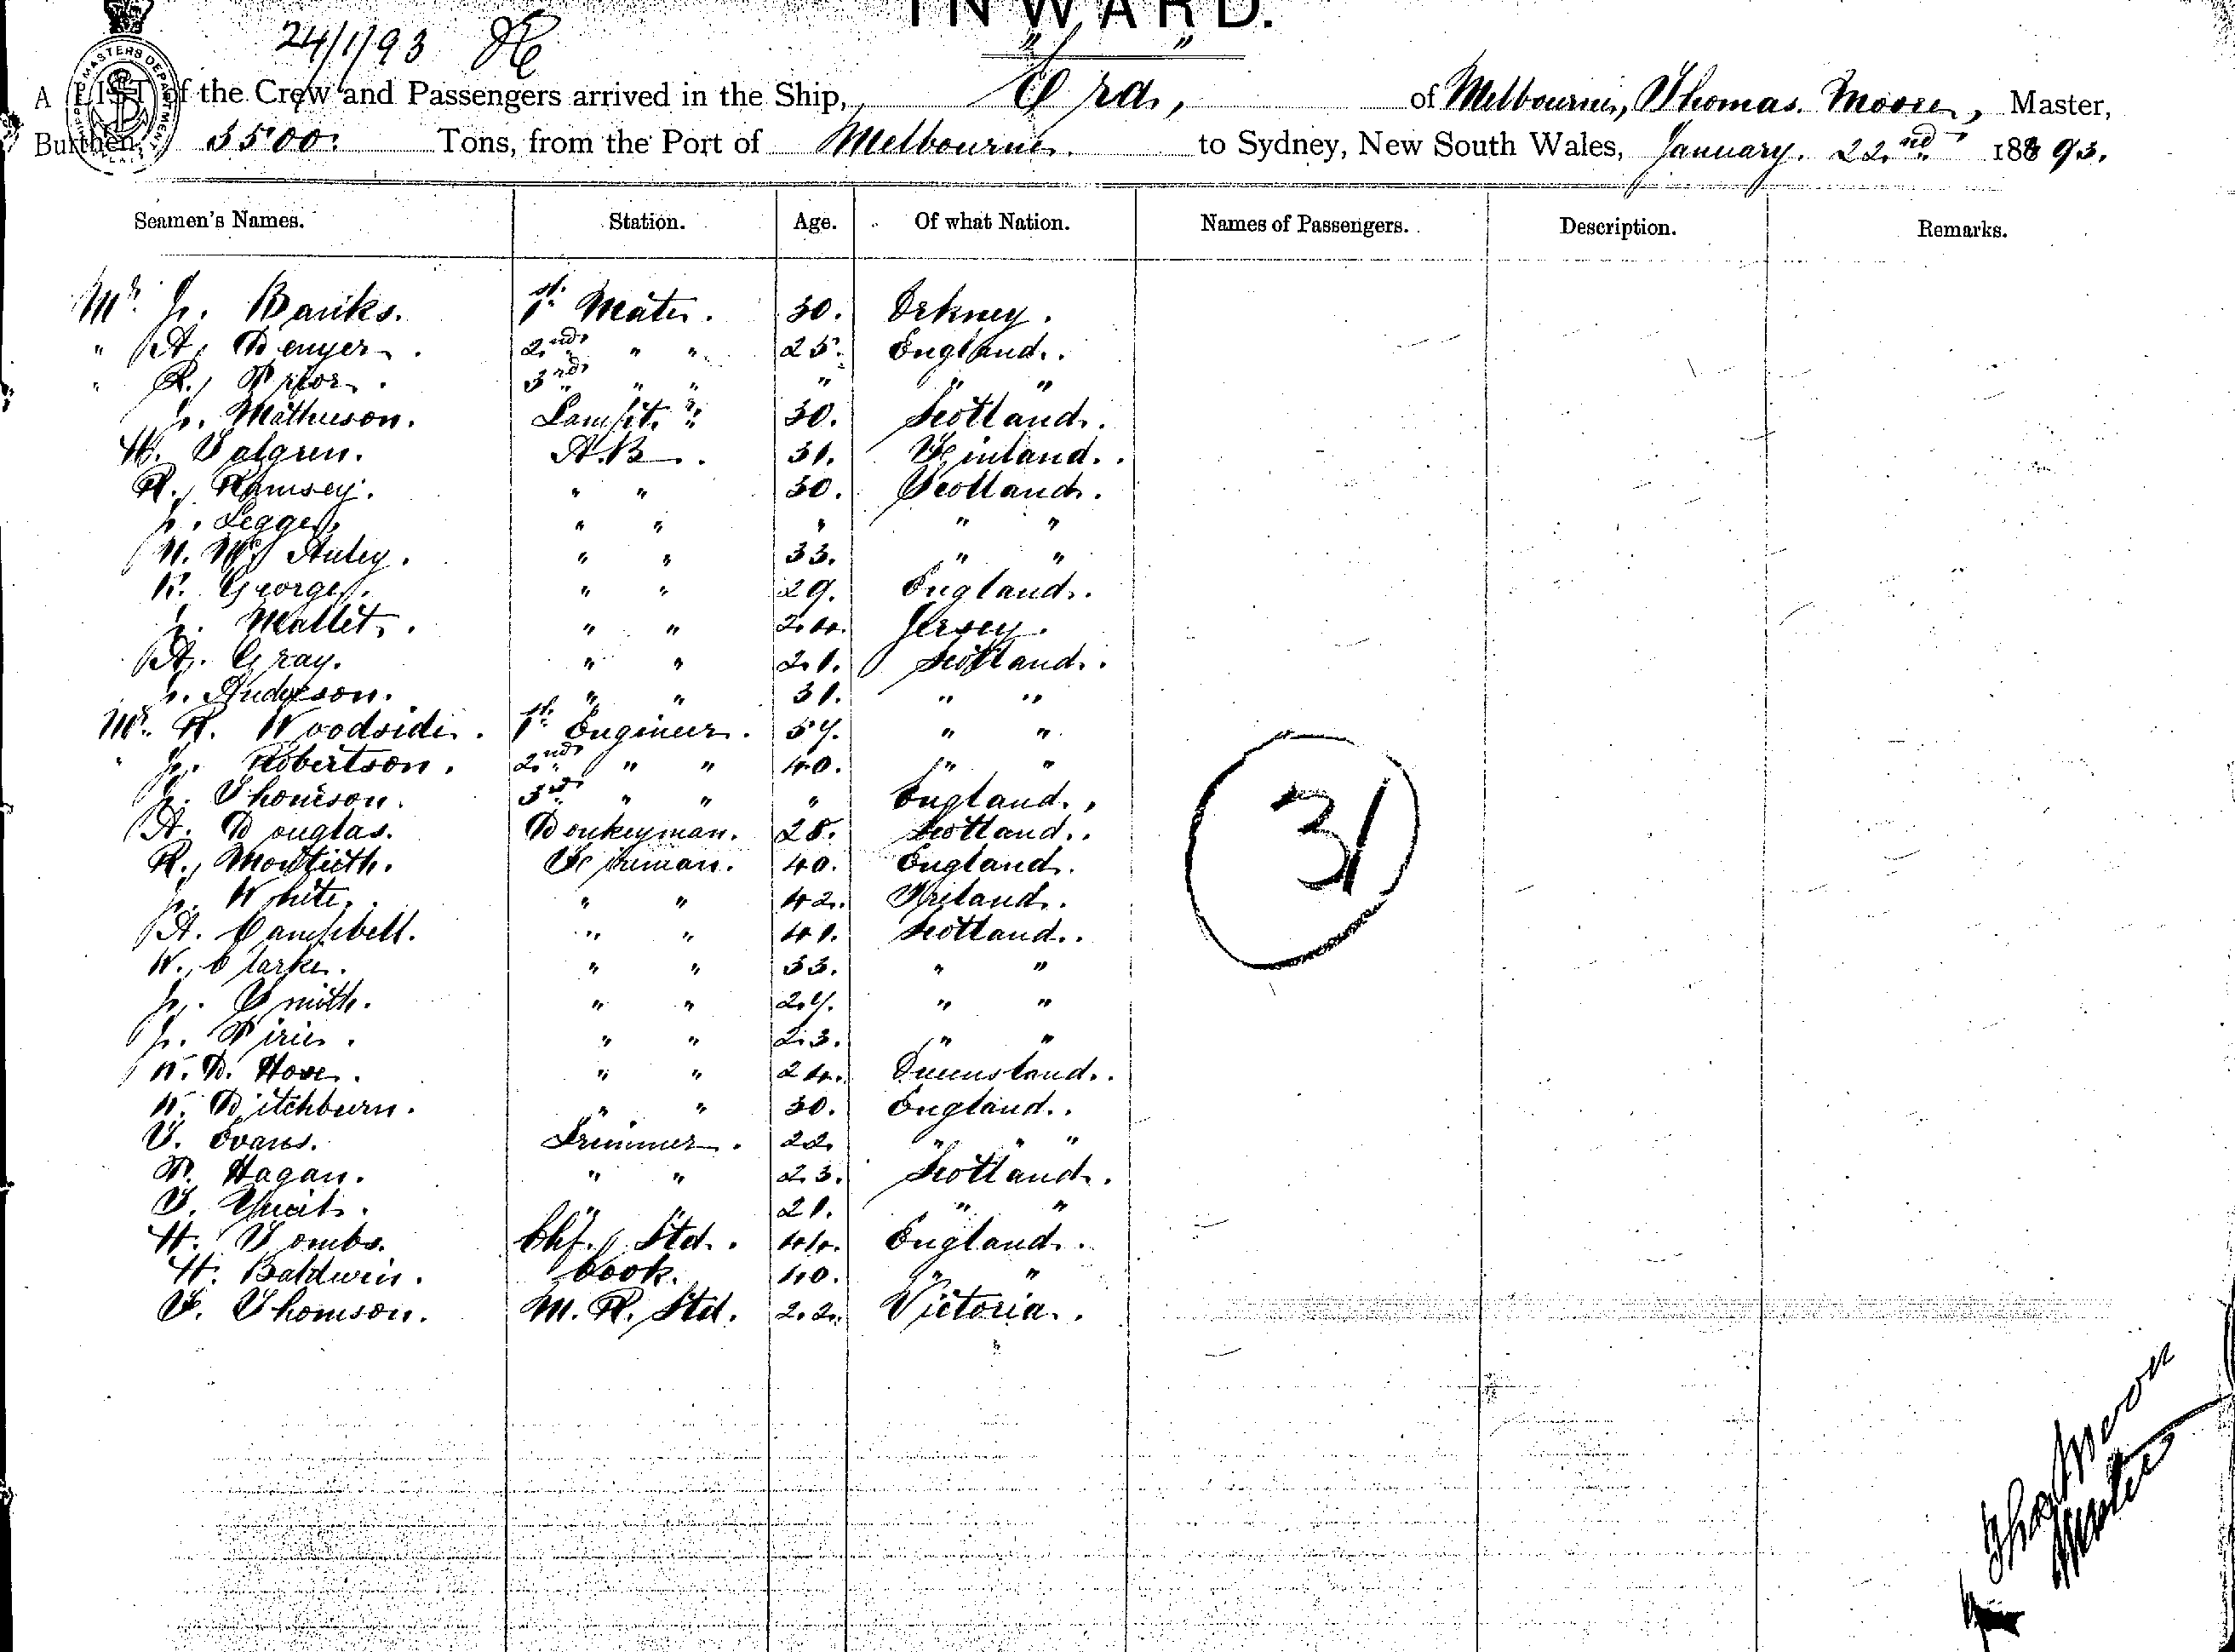 INWARD.
24/1/93
A LIST of the Crew and Passengers arrived in the Ship, "Ord", of Melbourne, Thomas Moore, Master,
Burthen 3500 Tons, from the Port of Melbourne to Sydney, New South Wales, January 22nd 1893.
Seamen's Names. Station. Age. Of what Nation. Names of Passengers. Description. Remarks.
Mr. J. Banks. 1st Mate. 30. Orkney.
" A. Denyer. 2nd " " 25. England.
" R. Prior. 3rd " " " " "
J. Mathieson. Lampt.r 30. Scotland.
H. Salgren. A.B. 31. Finland.
R. Ramsey. " " 30. Scotland.
J. Legge. " " " " "
N. Mc Auley. " " 33. " "
R. George. " " 29. England.
J. Mallet. " " 24. Jersey.
A. Gray. " " 21. Scotland.
J. Anderson. " " 31. " "
Mr. R. Woodside. 1st Engineer. 57. " "
" J. Robertson. 2nd " " 40. " "
J. Thomson. 3rd " " " England.
A. Douglas. Donkeyman. 28. Scotland.
R. Montieth. Fireman. 40. England.
J. White. " " 42. Ireland.
A. Campbell. " " 41. Scotland.
W. Clarke. " " 33. " "
J. Smith. " " 27. " "
J. Pirie. " " 23. " "
W. D. Hove. " " 24. Queensland.
W. Ditchburn. " " 30. England.
T. Evans. Trimmer. 22. " "
P. Hagan. " " 23. Scotland.
T. " " 21. " "
H. Tombs. Chf. Std. 44. England.
H. Baldwin. Cook. 40. " "
F. Thomson. M. R. Std. 22. Victoria.
31
Thos Moore
Master